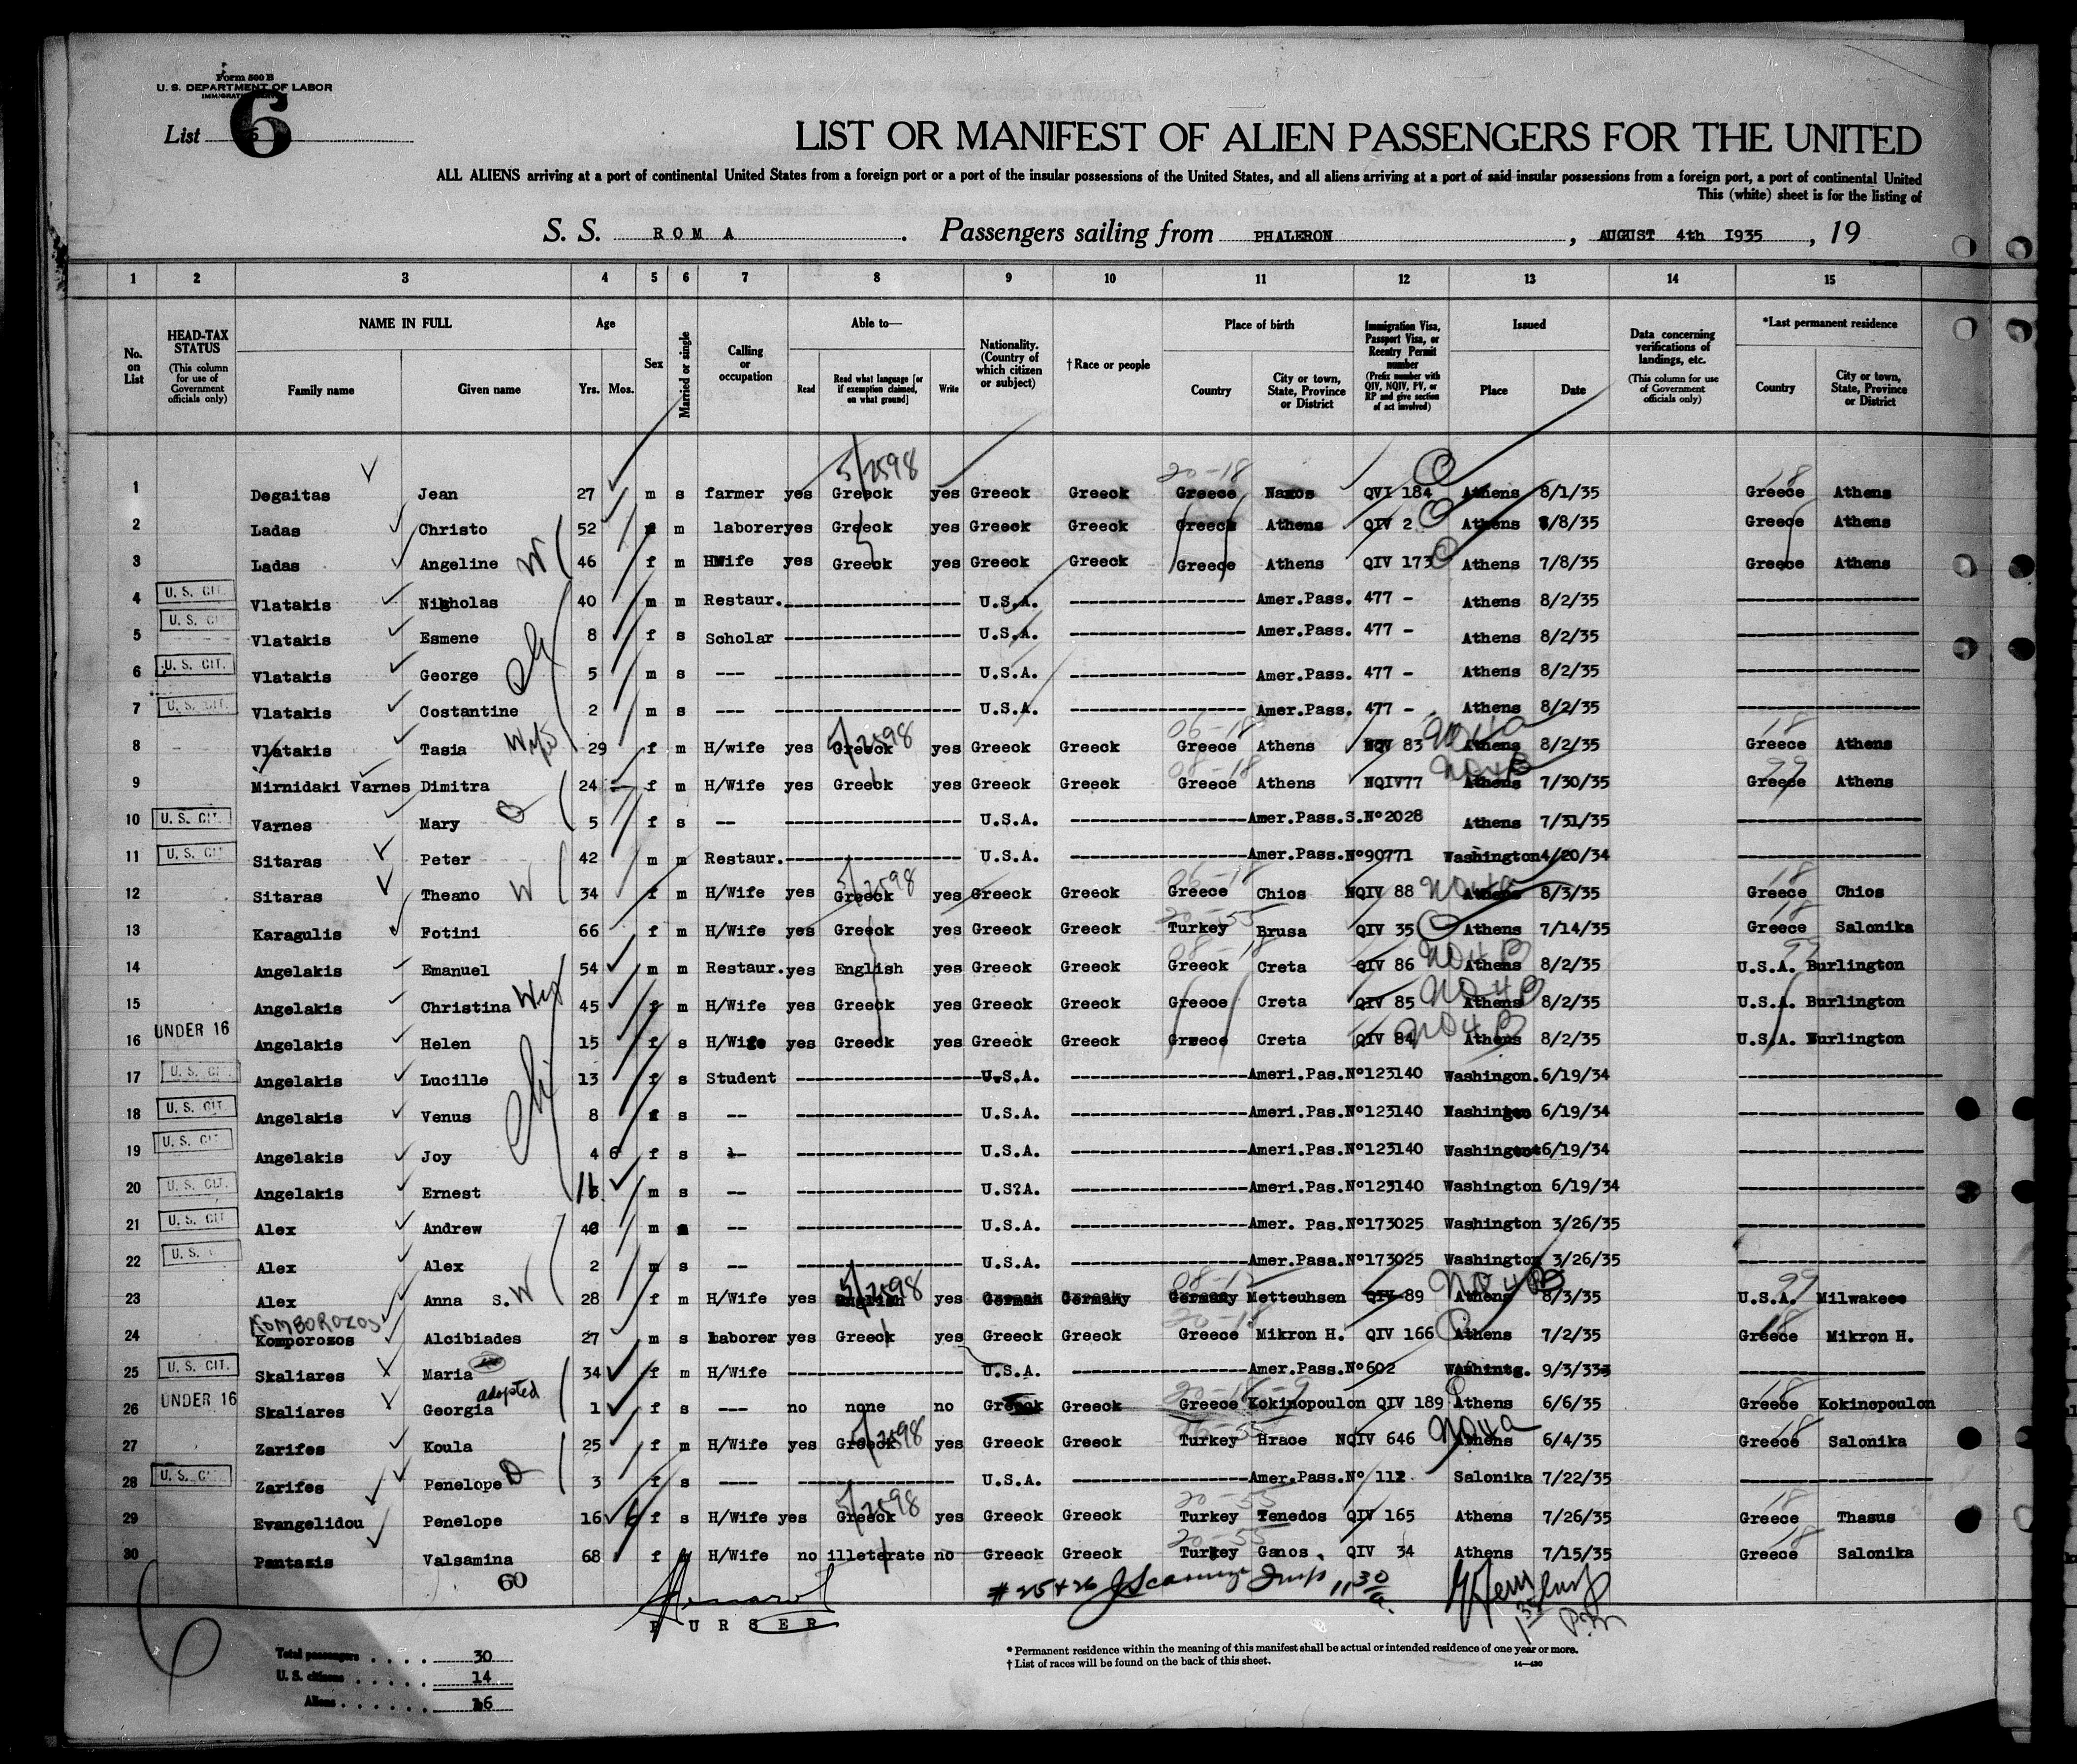 Form 500 B
U. S. DEPARTMENT OF LABOR
List 6
LIST OR MANIFEST OF ALIEN PASSENGERS FOR THE UNITED
ALL ALIENS arriving at a port of continental United States from a foreign port or a port of the insular possessions of the United States, and all aliens arriving at a port of said insular possessions from a foreign port, a port of continental United
This (white) sheet is for the listing of
S. S. ROMA. Passengers sailing from PHALERON, AUGUST 4th 1935, 19
1 2 3 4 5 6 7 8 9 10 11 12 13 14 15
No. on List
HEAD-TAX STATUS (This column for use of Government officials only)
NAME IN FULL
Family name Given name
Age
Yrs. Mos.
Sex
Married or single
Calling or occupation
Able to—
Read
Read what language [or if exemption claimed, on what ground]
Write
Nationality. (Country of which citizen or subject)
† Race or people
Place of birth
Country
City or town, State, Province or District
Immigration Visa, Passport Visa, or Reentry Permit number (Prefix number with QIV, NQIV, PV, or RP and give section of act involved)
Issued
Place Date
Data concerning verifications of landings, etc. (This column for use of Government officials only)
*Last permanent residence
Country
City or town, State, Province or District
5/2598 20-18 18
1 Degaitas Jean 27 m s farmer yes Greeck yes Greeck Greeck Greece Naxos QVI 184 Athens 8/1/35 Greece Athens
2 Ladas Christo 52 m laborer yes Greeck yes Greeck Greeck Greeck Athens QIV 2 Athens 8/35 Greece Athens
3 Ladas Angeline W 46 f m HWife yes Greeck yes Greeck Greeck Greece Athens QIV 173 Athens 7/8/35 Greece Athens
4 U. S. CIT. Vlatakis Nigholas 40 m m Restaur. U.S.A. Amer.Pass. 477 - Athens 8/2/35
5 U. S. CIT. Vlatakis Esmene 8 f s Scholar U.S.A. Amer.Pass. 477 - Athens 8/2/35
6 U. S. CIT. Vlatakis George 5 m s --- U.S.A. Amer.Pass. 477 - Athens 8/2/35
7 U. S. CIT. Vlatakis Costantine 2 m s --- U.S.A. Amer.Pass. 477 - Athens 8/2/35
5/2598 06-18 NO4a 18
8 Vlatakis Tasia Wife 29 f m H/wife yes Greeck yes Greeck Greeck Greece Athens NQV 83 Athens 8/2/35 Greece Athens
08-18 NO4B 99
9 Mirnidaki Varnes Dimitra 24 f m H/Wife yes Greeck yes Greeck Greeck Greece Athens NQIV77 Athens 7/30/35 Greece Athens
10 U. S. CIT. Varnes Mary D 5 f s -- U.S.A. Amer.Pass.S.Nº2028 Athens 7/31/35
11 U. S. CIT Sitaras Peter 42 m m Restaur. U.S.A. Amer.Pass.Nº90771 Washington 4/20/34
5/2598 06-18 NO4a 18
12 Sitaras Theano W 34 f m H/Wife yes Greeck yes Greeck Greeck Greece Chios NQIV 88 Athens 8/3/35 Greece Chios
20-55 18
13 Karagulis Fotini 66 f m H/Wife yes Greeck yes Greeck Greeck Turkey Brusa QIV 35 Athens 7/14/35 Greece Salonika
08-18 NO4B 99
14 Angelakis Emanuel 54 m m Restaur. yes English yes Greeck Greeck Greeck Creta QIV 86 Athens 8/2/35 U.S.A. Burlington
NO4B
15 Angelakis Christina Wife 45 f m H/Wife yes Greeck yes Greeck Greeck Greece Creta QIV 85 Athens 8/2/35 U.S.A. Burlington
NO4B
16 UNDER 16 Angelakis Helen 15 f s H/Wife yes Greeck yes Greeck Greeck Greece Creta QIV 84 Athens 8/2/35 U.S.A. Burlington
17 U. S. CIT Angelakis Lucille 13 f s Student U.S.A. Ameri.Pas.Nº123140 Washingon. 6/19/34
18 U. S. CIT Angelakis Venus 8 f s -- U.S.A. Ameri.Pas.Nº123140 Washington 6/19/34
19 U. S. CIT Angelakis Joy 4 6 f s -- U.S.A. Ameri.Pas.Nº123140 Washington 6/19/34
20 U. S. CIT. Angelakis Ernest m s -- U.S?A. Ameri.Pas.Nº123140 Washington 6/19/34
21 U. S. CIT Alex Andrew 40 m -- U.S.A. Amer. Pas.Nº173025 Washington 3/26/35
22 U. S. Alex Alex 2 m s -- U.S.A. Amer.Pasa.Nº173025 Washington 3/26/35
5/2598 NO4B 99
23 Alex Anna S. W 28 f m H/Wife yes English yes German Germany Germany Metteuhsen QIV-89 Athens 8/3/35 U.S.A. Milwakeee
KOMBOROZOS 20-18 18
24 Komporozos Alcibiades 27 m s Laborer yes Greeck yes Greeck Greeck Greece Mikron H. QIV 166 Athens 7/2/35 Greece Mikron H.
25 U. S. CIT. Skaliares Maria 34 f m H/Wife U.S.A. Amer.Pass.Nº602 Washintg. 9/3/33
adopted 18
26 UNDER 16 Skaliares Georgia 1 f s --- no none no Greeck Greeck Greece Kokinopoulon QIV 189 Athens 6/6/35 Greece Kokinopoulon
5/2598 06-55 NO4a 18
27 Zarifes Koula 25 f m H/Wife yes Greeck yes Greeck Greeck Turkey Hrace NQIV 646 Athens 6/4/35 Greece Salonika
28 U. S. CIT Zarifes Penelope D 3 f s ---- U.S.A. Amer.Pass.Nº 112 Salonika 7/22/35
5/2598 20-55 18
29 Evangelidou Penelope 16 6 f s H/Wife yes Greeck yes Greeck Greeck Turkey Tenedos QIV 165 Athens 7/26/35 Greece Thasus
20-55 18
30 Pantasis Valsamina 68 f H/Wife no illeterate no Greeck Greeck Turkey Ganos. QIV 34 Athens 7/15/35 Greece Salonika
60
# 25 + 26 Insp 11 30/a.
PURSER
Total passengers .... 30
U. S. citizens ..... 14
Aliens ...... 16
* Permanent residence within the meaning of this manifest shall be actual or intended residence of one year or more.
† List of races will be found on the back of this sheet.
14—420